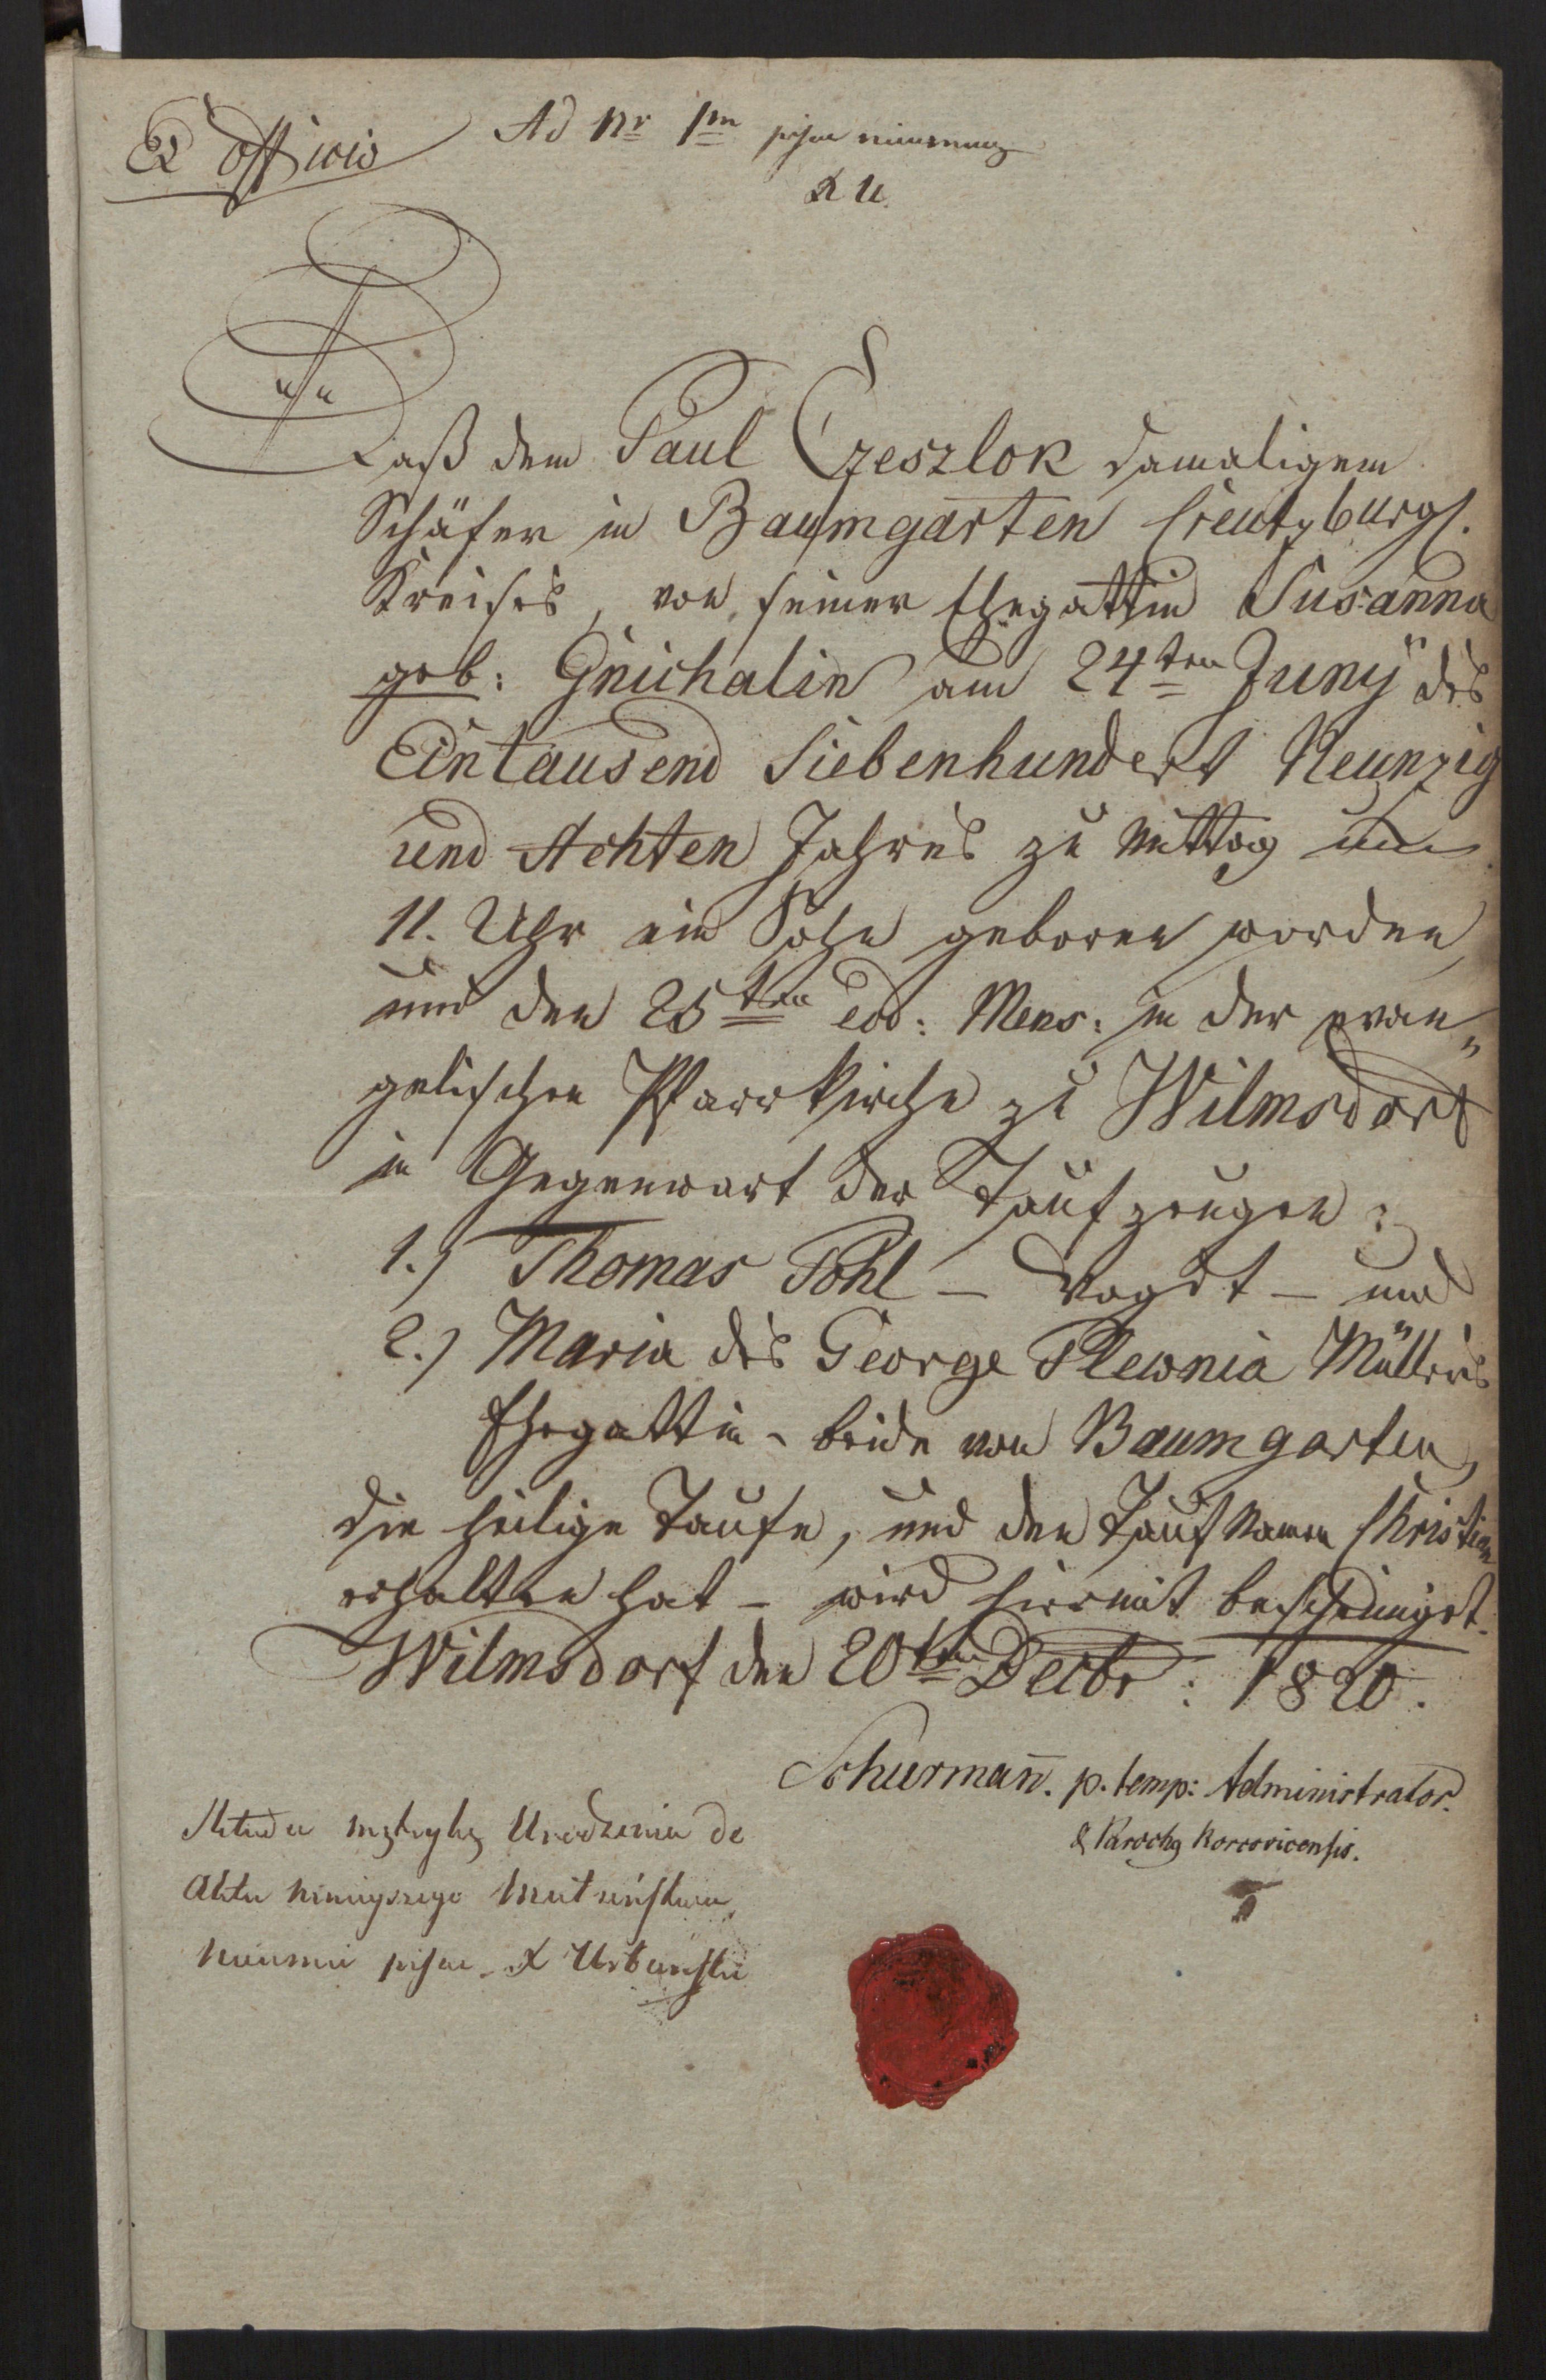 Ex Officio
Ad Nr 1m
X U.
Daß dem Paul Czeszlok damaligem
Schäfer in Baumgarten Creutzburgs.
Kreises, von seiner Ehegattin Susanna
geb: Gnichalin am 24ten Juny des
Eintausend Siebenhundert Neunzig
und Achten Jahres zu Mittag um
11. Uhr ein Sohn geboren worden
und den 25ten eod: Mens: in der evan„
gelischen Pfarrkirche zu Wilmsdorf
in Gegenwart der Taufzeugen:
1.) Thomas Pohl – Vogdt – und
2.) Maria des George Plewnia Müllers
Ehegattin – beide von Baumgarten,
die heilige Taufe, und den Tauf Namen Christian
erhalten hat – wird hiermit bescheiniget.
Wilmsdorf den 20ten Decbr: 1820.
Schurmañ. p. temp: Administrator.
& Parochg
Urodzenia do
Aktu
X Urbański